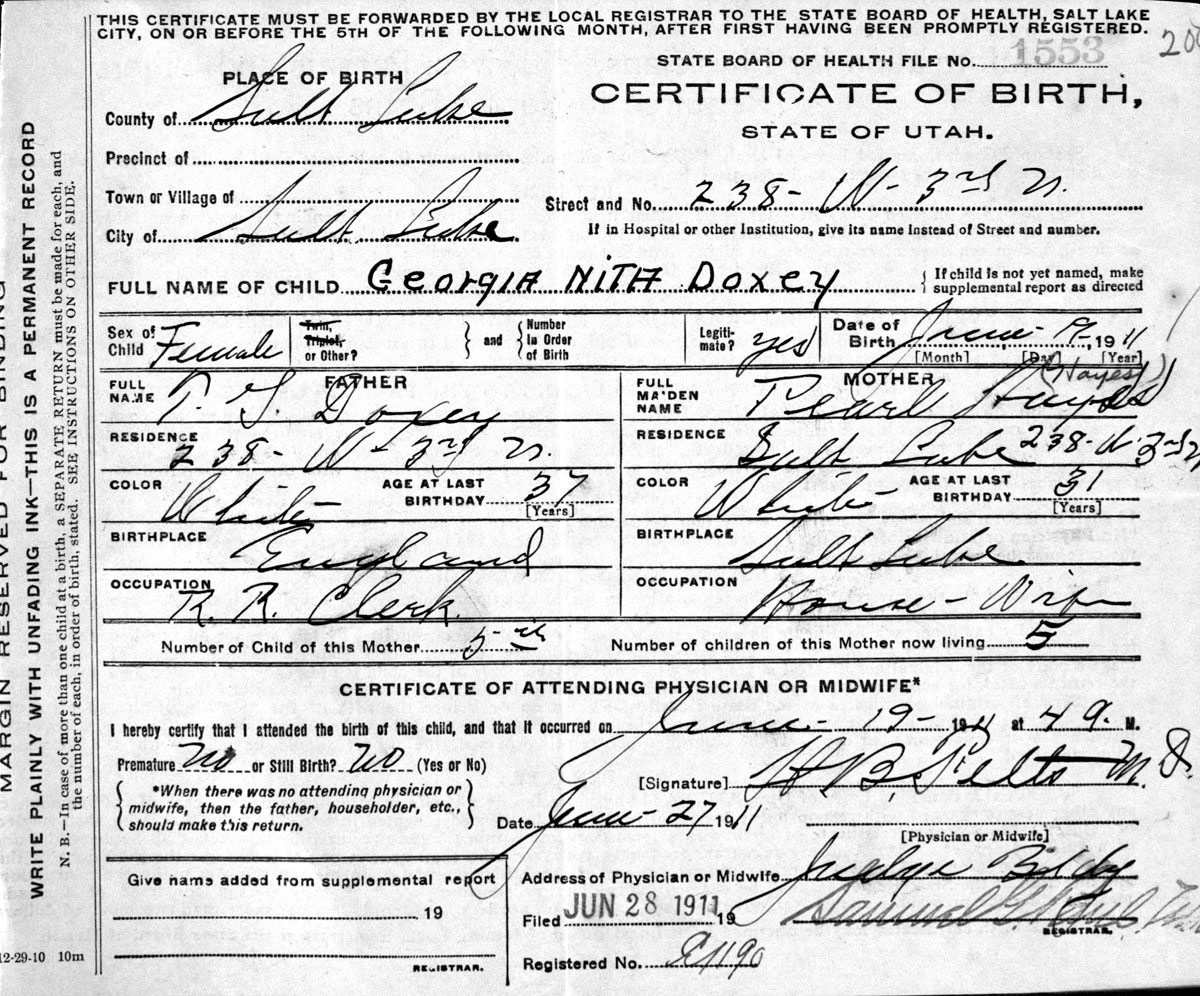 THIS CERTIFICATE MUST BE FORWARDED BY THE LOCAL REGISTRAR TO THE STATE BOARD OF HEALTH, SALT LAKE
CITY, ON OR BEFORE THE 5TH OF THE FOLLOWING MONTH, AFTER FIRST HAVING BEEN PROMPTLY REGISTERED.
STATE BOARD OF HEALTH FILE No. 1553
PLACE OF BIRTH
CERTIFICATE OF BIRTH,
STATE OF UTAH.
County of Salt Lake
Precinct of
Town or Village of
Street and No. 238- W- 3rd N.
City of Salt Lake
If in Hospital or other Institution, give its name instead of Street and number.
FULL NAME OF CHILD Georgia Nita Doxey
If child is not yet named, make
supplemental report as directed
Sex of Child Female
Twin, Triplet, or Other?
and
Number in Order of Birth
Legiti-mate? yes
Date of Birth June 19, 1911
[Month] [Day] [Year]
FATHER
FULL NAME T. G. Doxey
RESIDENCE 238- W- 3rd N
COLOR White
AGE AT LAST BIRTHDAY 37
[Years]
BIRTHPLACE England
OCCUPATION R. R. Clerk.
MOTHER
(Hayes)
FULL MAIDEN NAME Pearl Hayes
RESIDENCE Salt Lake 238-W-3rd N
COLOR White
AGE AT LAST BIRTHDAY 31
[Years]
BIRTHPLACE Salt Lake
OCCUPATION House-Wife
Number of Child of this Mother 5th
Number of children of this Mother now living 5
CERTIFICATE OF ATTENDING PHYSICIAN OR MIDWIFE*
I hereby certify that I attended the birth of this child, and that it occurred on June- 19- 1911 at 4 9. M.
Premature No or Still Birth? No (Yes or No)
[Signature] H B, Felts M. D.
*When there was no attending physician or
midwife, then the father, householder, etc.,
should make this return.
Date June- 27 1911
[Physician or Midwife]
Give name added from supplemental report
19
REGISTRAR.
Address of Physician or Midwife Judge Bldg
Filed JUN 28 1911 19
Samuel G.
REGISTRAR.
Registered No. 1190
MARGIN RESERVED FOR BINDING
WRITE PLAINLY WITH UNFADING INK—THIS IS A PERMANENT RECORD
N. B.—In case of more than one child at a birth, a SEPARATE RETURN must be made for each, and
the number of each, in order of birth, stated. SEE INSTRUCTIONS ON OTHER SIDE.
12-29-10 10m